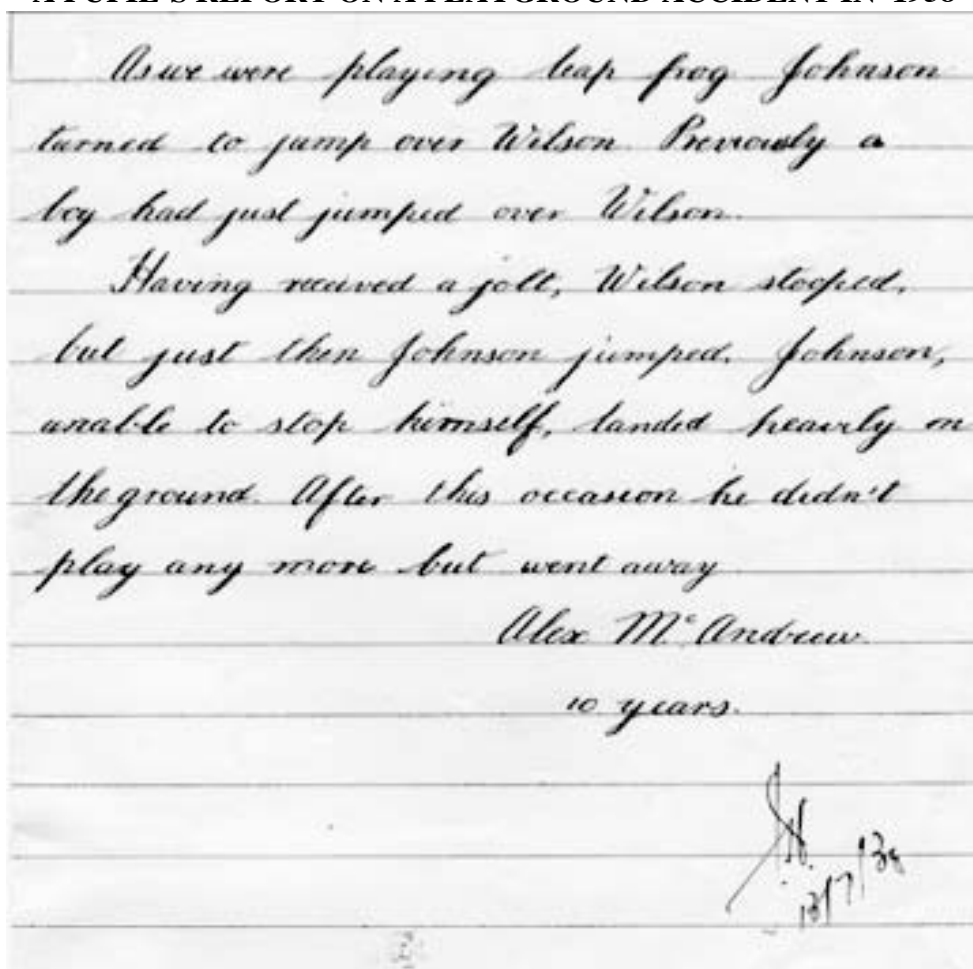 A PUPIL'S REPORT ON A PLAYGROUND ACCIDENT IN 1938
As we were playing leap frog Johnson
turned to jump over Wilson. Previously a
boy had just jumped over Wilson.
Having received a jolt, Wilson stooped,
but just then Johnson jumped. Johnson,
unable to stop himself, landed heavily on
the ground. After this occasion he didn't
play any more but went away
Alex Mc Andrew.
10 years.
13/7/38